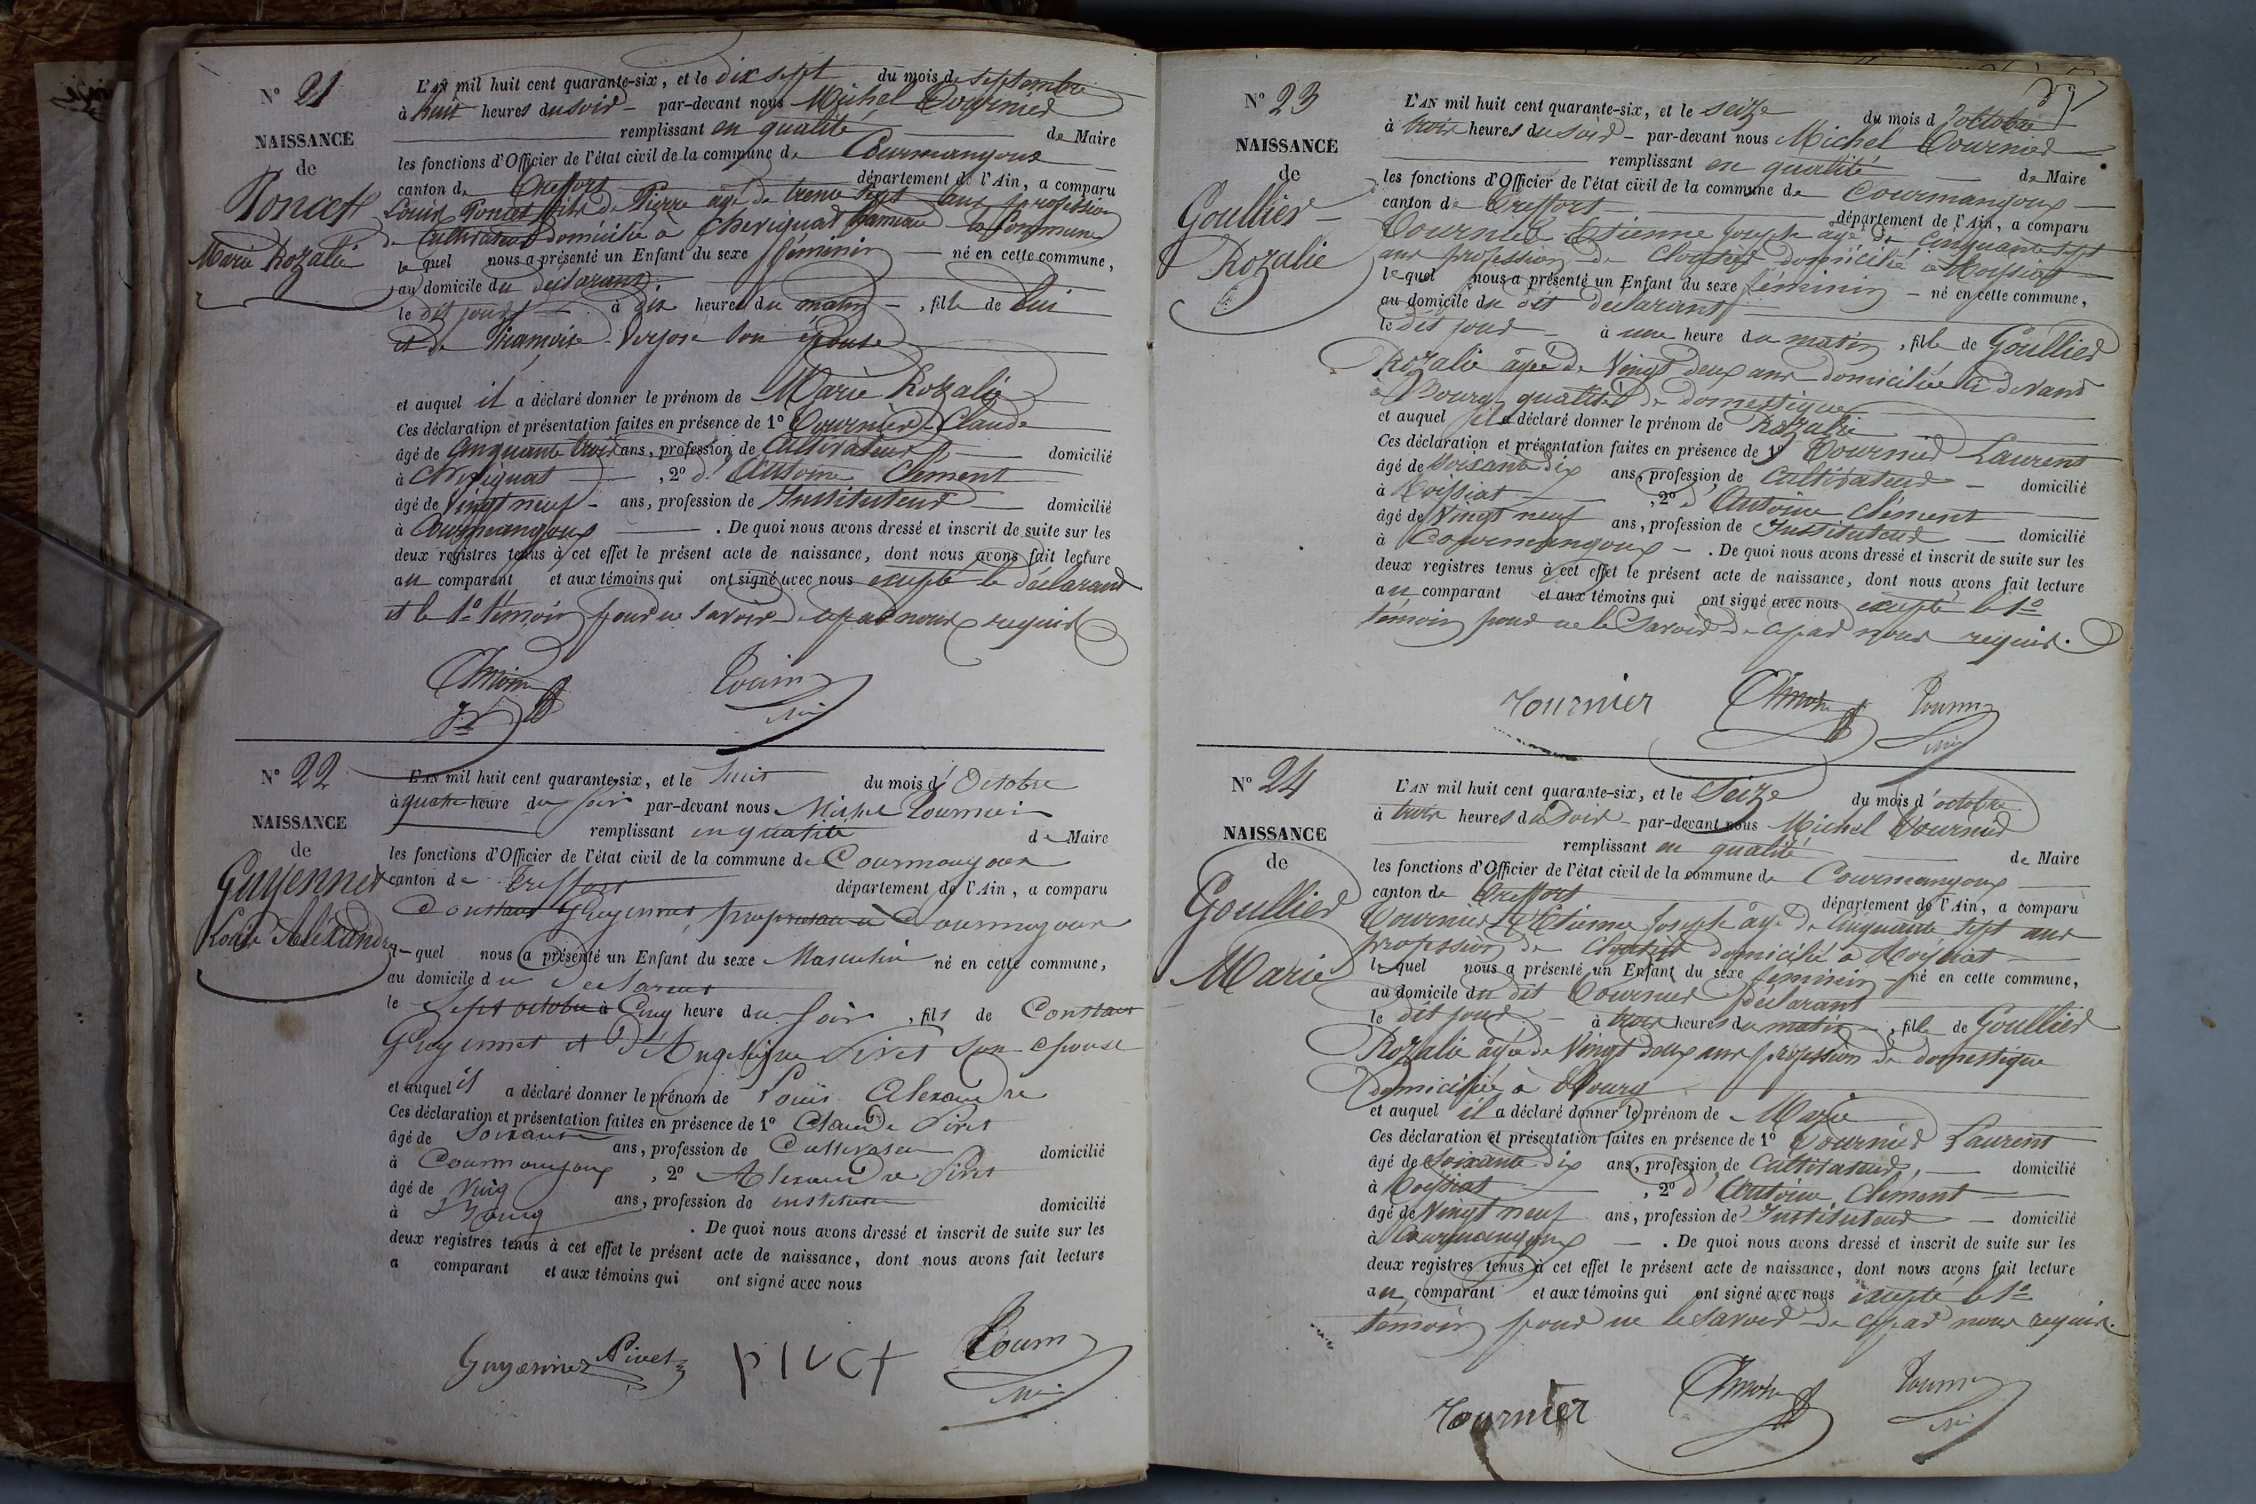 N° 21
NAISSANCE
de
Poncet
Marie Rozalie
L'AN mil huit cent quarante-six, et le dix sept du mois de septembre
à huit heures du soir par-devant nous Michel Tournier
remplissant en qualité de Maire
les fonctions d'Officier de l'état civil de la commune de Courmangoux
canton de Treffort département de l'Ain, a comparu
Louis Poncet fils de Pierre âgé de trente sept ans profession
de Cultivateur domicilié à Chevignat hameau la Commune
le quel nous a présenté un Enfant du sexe féminin né en cette commune,
au domicile du déclarant
le dit jour à dix heures du matin, fille de lui
et de Françoise son épouse
et auquel il a déclaré donner le prénom de Marie Rozalie
Ces déclaration et présentation faites en présence de 1° Tournier Claude
âgé de Cinquante trois ans, profession de Cultivateur domicilié
à Chevignat, 2° d'Antoine Clément
âgé de Vingt neuf ans, profession de Instituteur domicilié
à Courmangoux. De quoi nous avons dressé et inscrit de suite sur les
deux registres tenus à cet effet le présent acte de naissance, dont nous avons fait lecture
au comparant et aux témoins qui ont signé avec nous excepté le déclarant
et le 1° témoin pour ne savoir de ce par nous requis
N° 22
NAISSANCE
de
Guyennet
Louis Aléxandre
L'AN mil huit cent quarante-six, et le huit du mois d'Octobre
à quatre heure du soir par-devant nous Michel Tournier
remplissant en qualité de Maire
les fonctions d'Officier de l'état civil de la commune de Courmangoux
canton de Treffort département de l'Ain, a comparu
Constant Guyennet, propriétaire à Courmangoux
le quel nous a présenté un Enfant du sexe Masculin né en cette commune,
au domicile du déclarant
le Sept octobre à Cinq heure du soir, fils de Constant
Guyennet et d'Angélique Pivet son épouse
et auquel il a déclaré donner le prénom de Louis Alexandre
Ces déclaration et présentation faites en présence de 1° Claude Pivet
âgé de Soixante ans, profession de Cultivateur domicilié
à Courmangoux, 2° Alexandre Pivet
âgé de Ving ans, profession de instituteur domicilié
à Bourg. De quoi nous avons dressé et inscrit de suite sur les
deux registres tenus à cet effet le présent acte de naissance, dont nous avons fait lecture
a comparant et aux témoins qui ont signé avec nous
Guyennet Pivet pivet Tourn
N° 23
NAISSANCE
de
Goullier
Rozalie
L'AN mil huit cent quarante-six, et le seize du mois d'octobre
à trois heures du soir par-devant nous Michel Tournier
remplissant en qualité de Maire
les fonctions d'Officier de l'état civil de la commune de Courmangoux
canton de Treffort département de l'Ain, a comparu
Tournier Etienne Joseph âgé de Cinquante sept
ans profession de domicilié à Roissiat
le quel nous a présenté un Enfant du sexe féminin né en cette commune,
au domicile du dit déclarant
le dit jour à une heure du matin, fille de Goullier
Rozalie âgée de Vingt deux ans domiciliée ci devant
à Bourg qualité de domestique
et auquel il a déclaré donner le prénom de Rozalie
Ces déclaration et présentation faites en présence de 1° Tournier Laurent
âgé de soixante dix ans, profession de Cultivateur domicilié
à Roissiat, 2° d'Antoine Clément
âgé de Vingt neuf ans, profession de Instituteur domicilié
à Courmangoux. De quoi nous avons dressé et inscrit de suite sur les
deux registres tenus à cet effet le présent acte de naissance, dont nous avons fait lecture
au comparant et aux témoins qui ont signé avec nous excepté le 1°
témoin pour ne le savoir de ce par nous requis.
Tournier Tourn
N° 24
NAISSANCE
de
Goullier
Marie
L'AN mil huit cent quarante-six, et le Seize du mois d'octobre
à trois heures du Soir par-devant nous Michel Tournier
remplissant en qualité de Maire
les fonctions d'Officier de l'état civil de la commune de Courmangoux
canton de Treffort département de l'Ain, a comparu
Tournier Etienne Joseph âgé de Cinquante sept ans
profession de domicilié à Roissiat
le quel nous a présenté un Enfant du sexe féminin né en cette commune,
au domicile du dit Tournier déclarant
le dit jour à trois heures du matin, fille de Goullier
Rozalie âgée de Vingt deux ans profession de domestique
domiciliée à Bourg
et auquel il a déclaré donner le prénom de Marie
Ces déclaration et présentation faites en présence de 1° Tournier Laurent
âgé de Soixante dix ans, profession de Cultivateur, domicilié
à Roissiat, 2° d'Antoine Clément
âgé de Vingt neuf ans, profession de Instituteur domicilié
à Courmangoux. De quoi nous avons dressé et inscrit de suite sur les
deux registres tenus à cet effet le présent acte de naissance, dont nous avons fait lecture
au comparant et aux témoins qui ont signé avec nous excepté le 1°
témoin pour ne le savoir de ce par nous requis.
Tournier Tourn